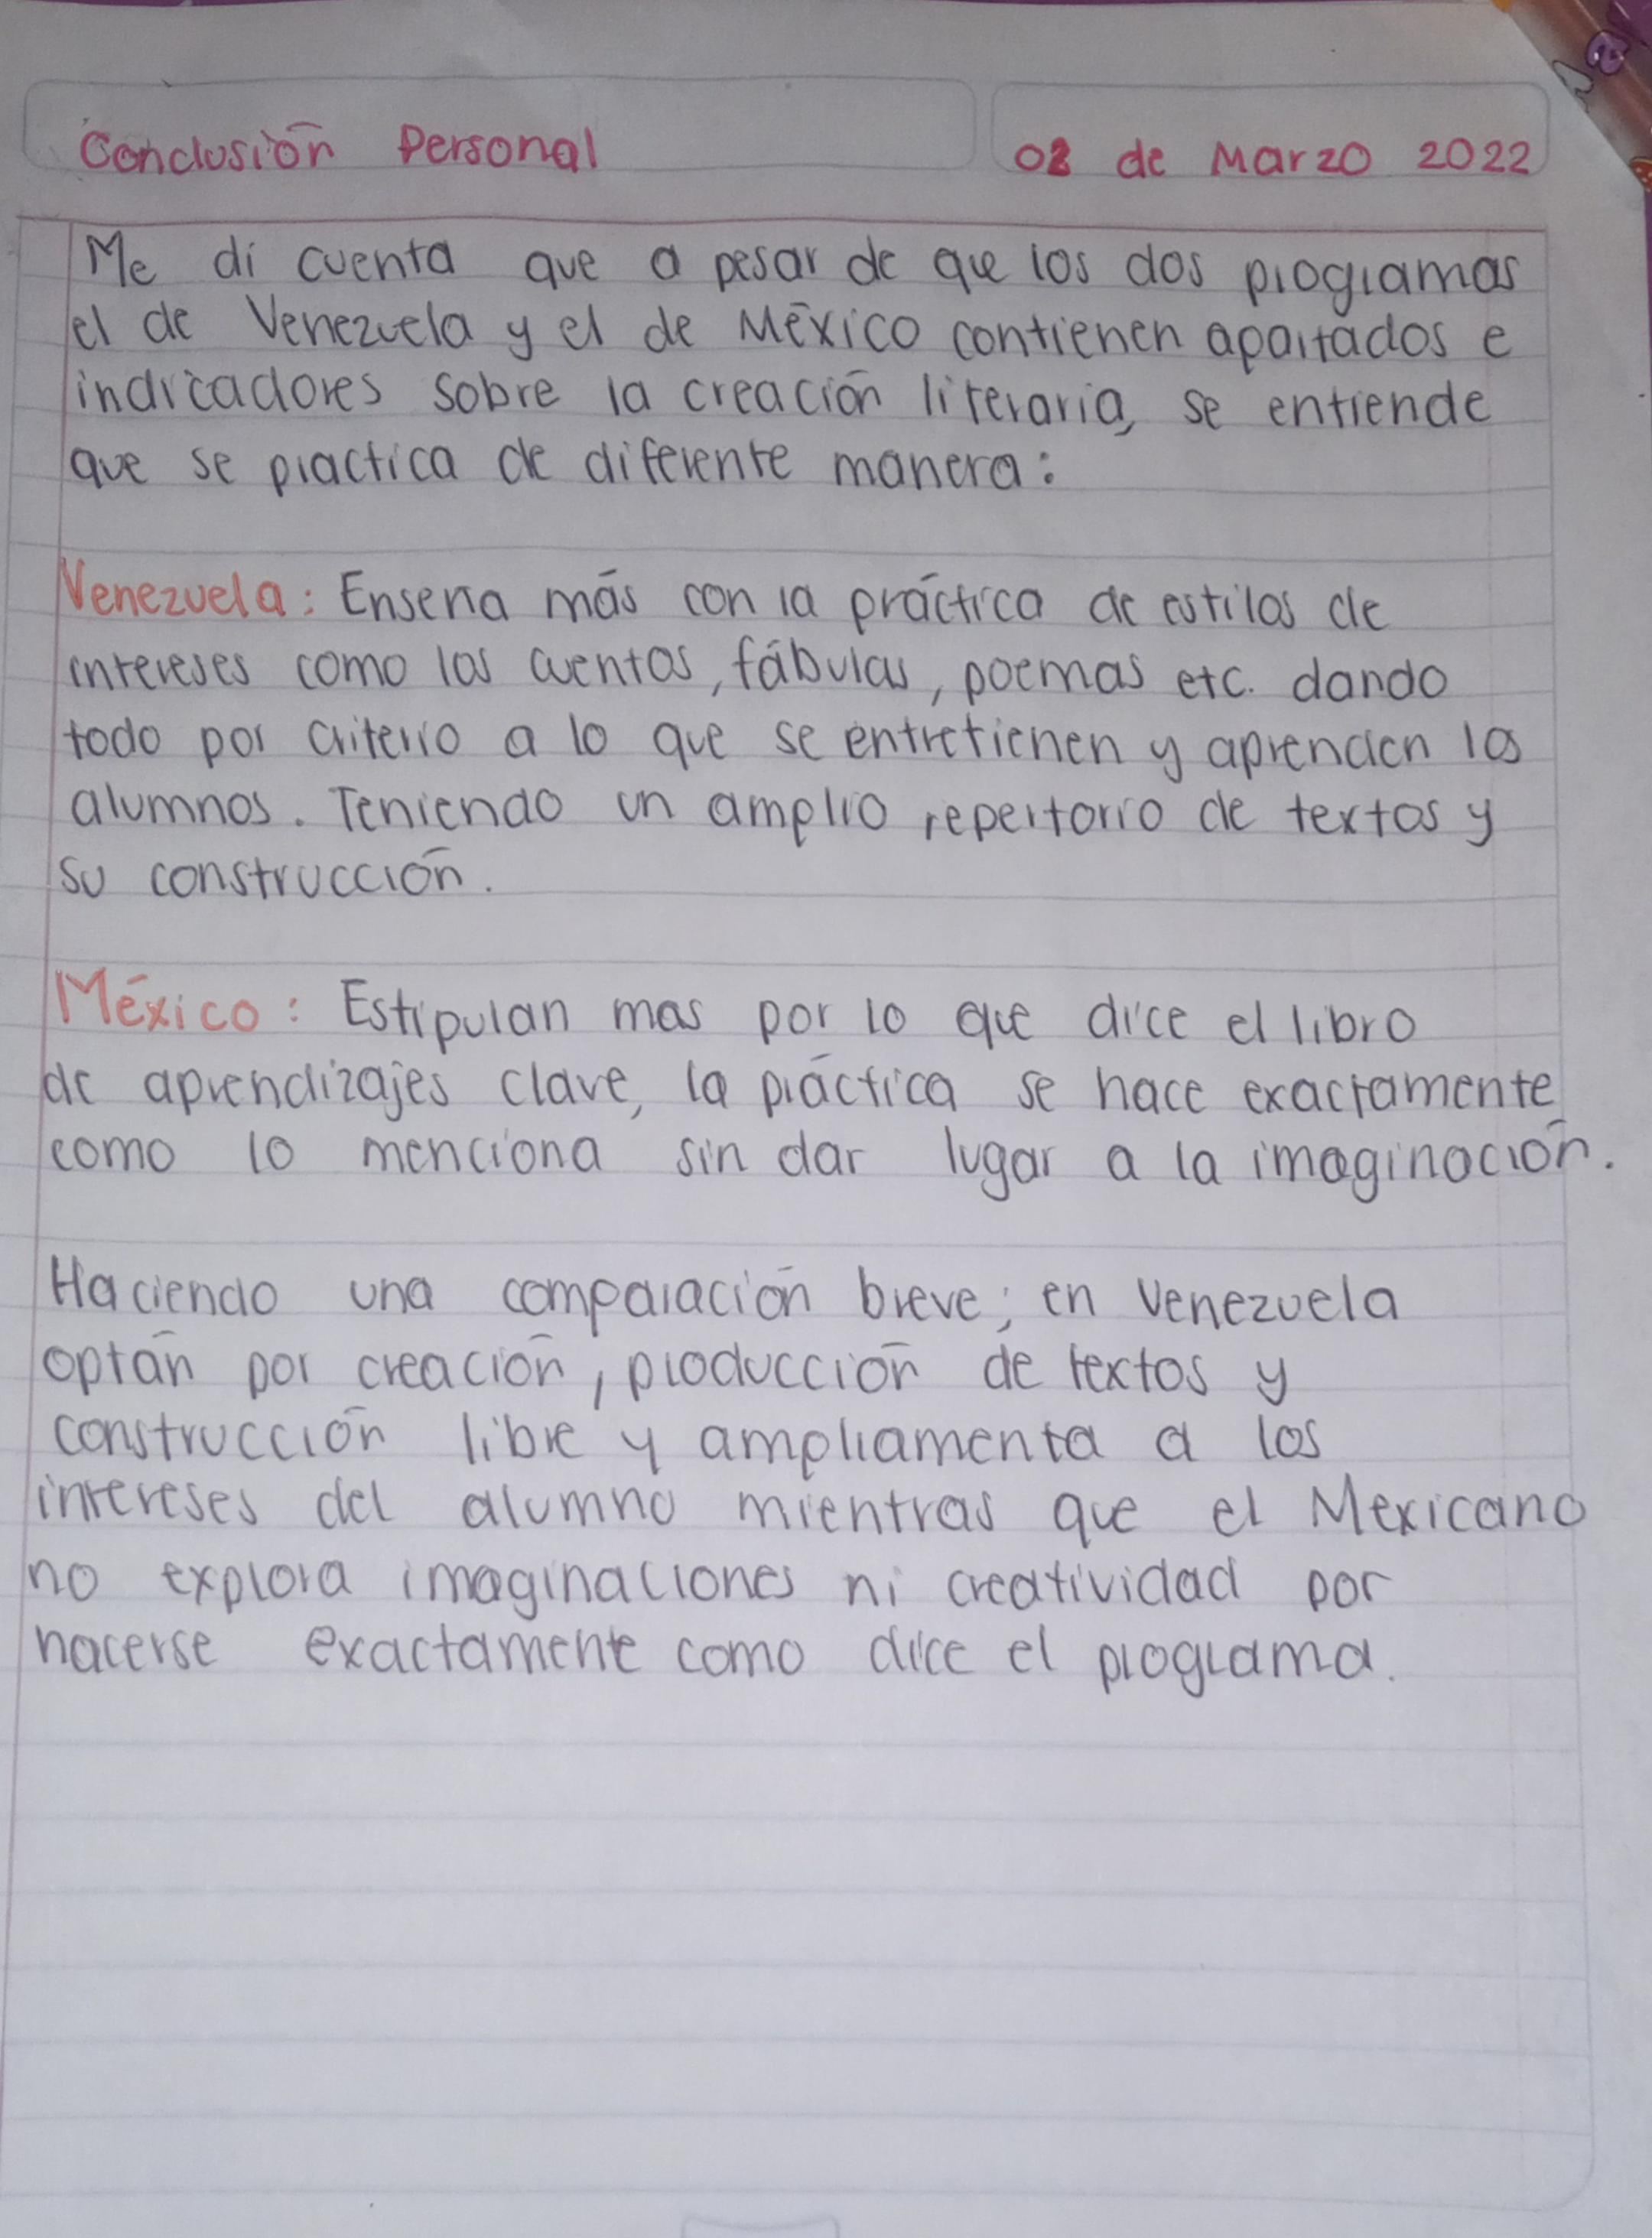 Conclusión Personal
02 de Marzo 2022
Me di cuenta que a pesar de que los dos programas
el de Venezuela y el de México contienen apartados e
indicadores sobre la creación literaria, se entiende
que se practica de diferente manera:
Venezuela: Enseña más con la práctica de estilos de
intereses como los cuentos, fábulas, poemas etc. dando
todo por criterio a lo que se entretienen y aprenden los
alumnos. Teniendo un amplio repertorio de textos y
su construcción.
México: Estipulan mas por lo que dice el libro
de aprendizajes clave, la práctica se hace exactamente
como lo menciona sin dar lugar a la imaginación.
Haciendo una comparación breve; en Venezuela
optán por creación, producción de textos y
construcción libre y ampliamenta a los
intereses del alumno mientras que el Mexicano
no explora imaginaciones ni creatividad por
hacerse exactamente como dice el programa.